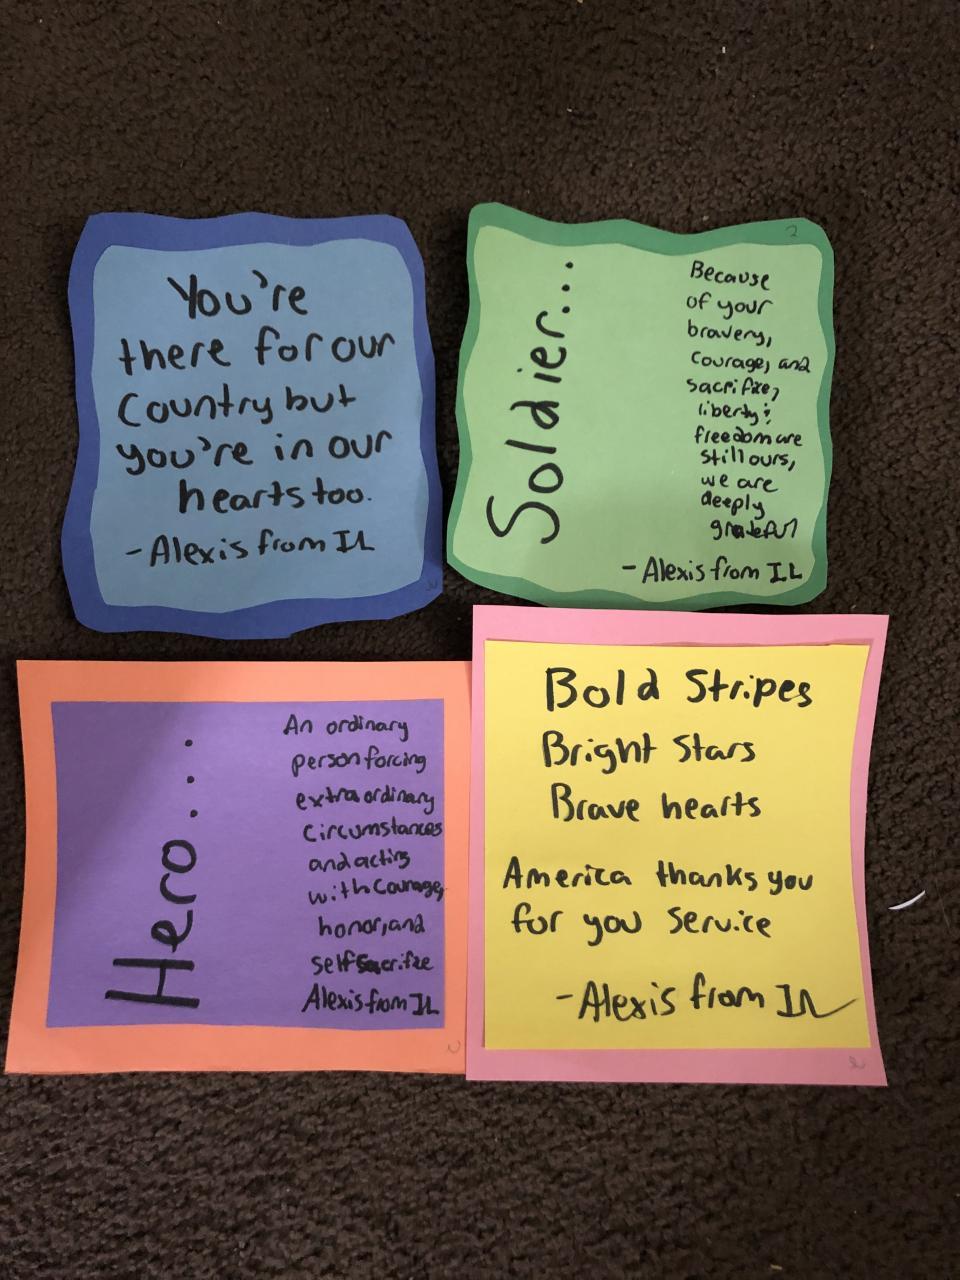 You're
there for our
Country but
you're in our
hearts too.
- Alexis from IL
Soldier...
Because
of your
bravery,
courage, and
sacrifize,
liberty &
freedom are
still ours,
we are
deeply
grateful
- Alexis from IL
Hero...
An ordinary
person forcing
extraordinary
circumstances
and acting
with courage,
honor, and
self sacrifize
Alexis from IL
Bold Stripes
Bright Stars
Brave hearts
America thanks you
for you service
- Alexis from IL